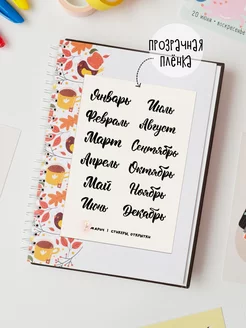 20 июня · воскресенье
ПРОЗРАЧНАЯ
ПЛЁНКА
Январь Июль
Февраль Август
Март Сентябрь
Апрель Октябрь
Май Ноябрь
Июнь Декабрь
МАРИЧ | СТИКЕРЫ, ОТКРЫТКИ